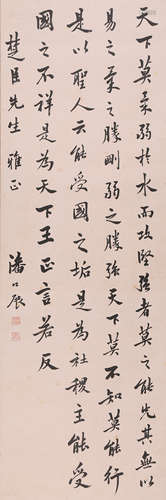 天下莫柔弱於水而攻堅強者莫之能先其無以
易之柔之勝剛弱之勝強天下莫不知莫能行
是以聖人云能受國之垢是為社稷主能受
國之不祥是為天下王正言若反
楚臣先生雅正
潘